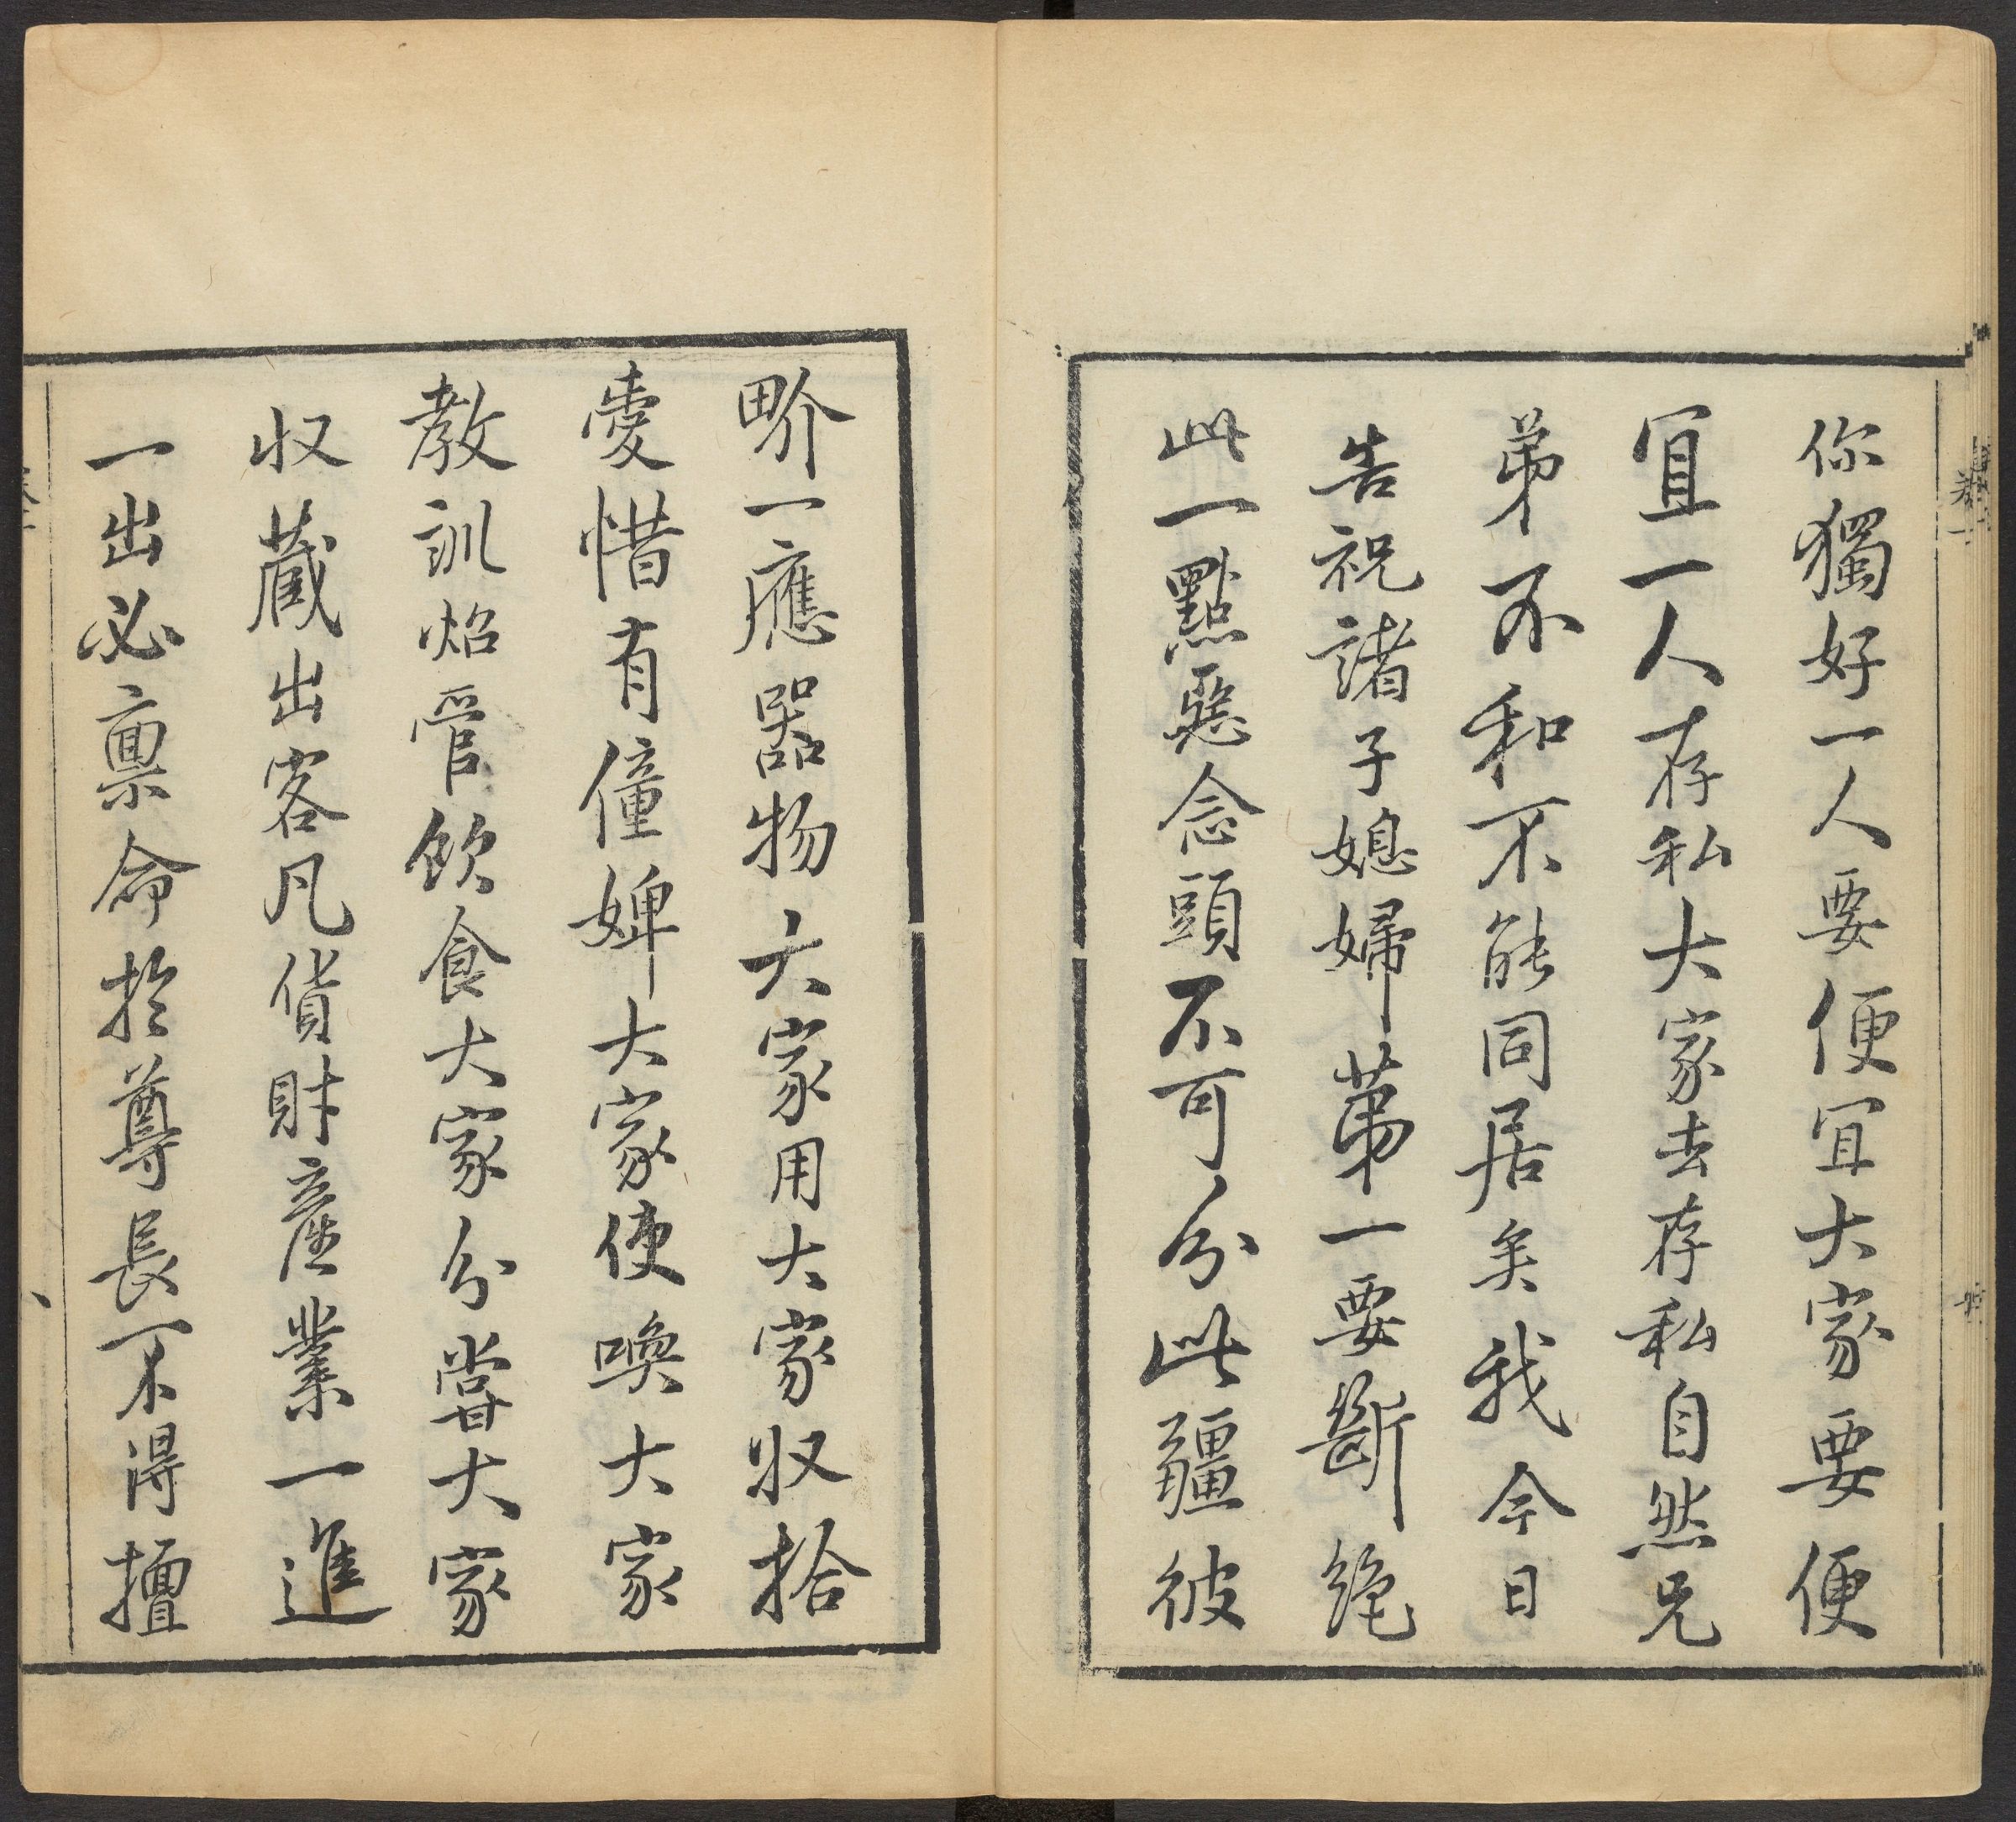 你獨好一人要便宜大家要便
宜一人存私大家去存私自然兄
弟不和不能同居矣我今日
告祝諸子媳婦第一要斷絕
此一點惡念頭不可分此疆彼
畍一應器物大家用大家収拾
愛惜有僮婢大家使喚大家
教訓炤管飲食大家分嘗大家
収藏出客凡貨財產業一進
一出必禀命於尊長不得擅